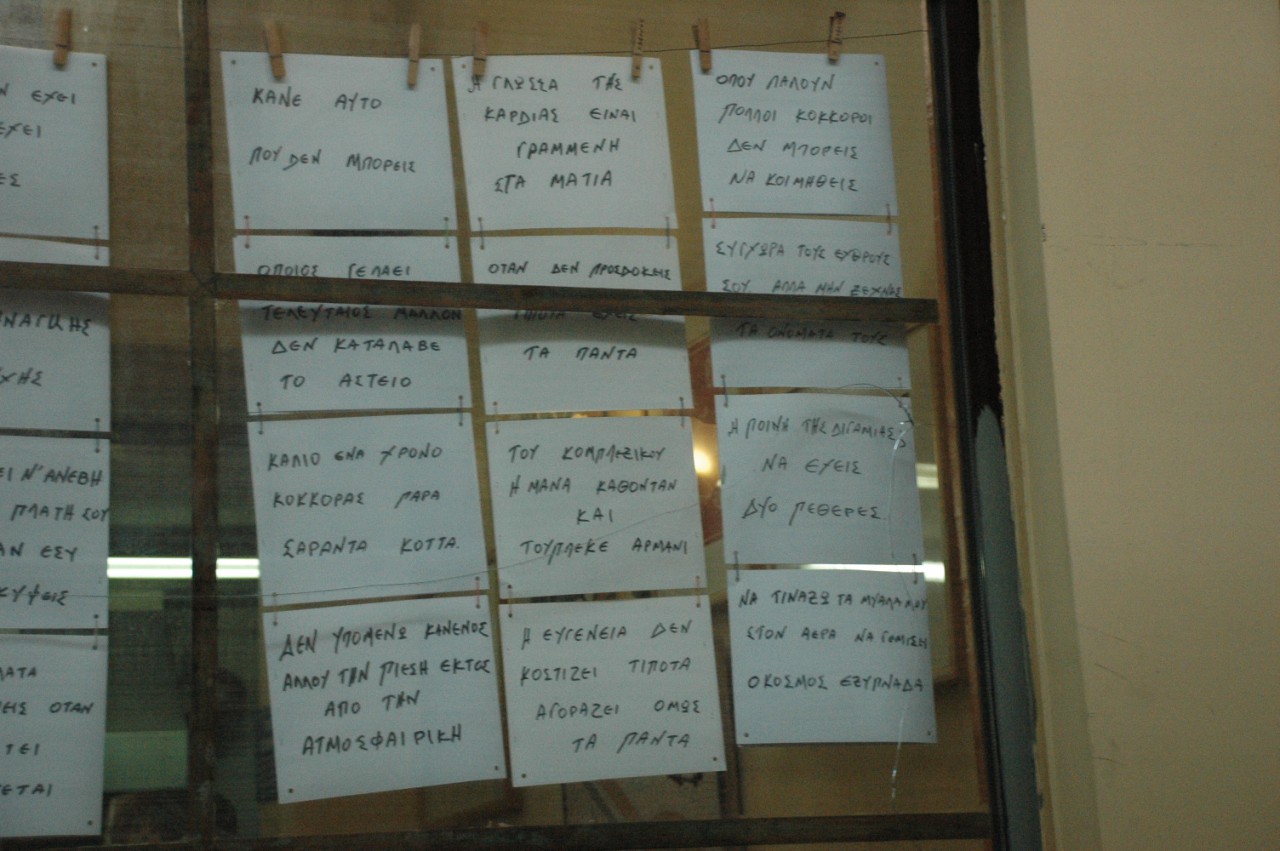 Ν ΕΧΕΙ
ΕΧΕΙ
ΕΣ
ΝΑΓΚΗΣ
ΧΗΣ
ΕΙ Ν'ΑΝΕΒΗ
ΠΛΑΤΗ ΣΟΥ
ΑΝ ΕΣΥ
ΚΥΨΕΙΣ
ΜΑΤΑ
ΕΙΣ ΟΤΑΝ
ΤΕΙ
ΕΤΑΙ
ΚΑΝΕ ΑΥΤΟ
ΠΟΥ ΔΕΝ ΜΠΟΡΕΙΣ
ΟΠΟΙΟΣ ΓΕΛΑΕΙ
ΤΕΛΕΥΤΑΙΟΣ ΜΑΛΛΟΝ
ΔΕΝ ΚΑΤΑΛΑΒΕ
ΤΟ ΑΣΤΕΙΟ
ΚΑΛΙΟ ΕΝΑ ΧΡΟΝΟ
ΚΟΚΚΟΡΑΣ ΠΑΡΑ
ΣΑΡΑΝΤΑ ΚΟΤΤΑ.
ΔΕΝ ΥΠΟΜΕΝΩ ΚΑΝΕΝΟΣ
ΑΛΛΟΥ ΤΗΝ ΠΙΕΣΗ ΕΚΤΟΣ
ΑΠΟ ΤΗΝ
ΑΤΜΟΣΦΑΙΡΙΚΗ
Η ΓΛΩΣΣΑ ΤΗΣ
ΚΑΡΔΙΑΣ ΕΙΝΑΙ
ΓΡΑΜΜΕΝΗ
ΣΤΑ ΜΑΤΙΑ
ΟΤΑΝ ΔΕΝ ΠΡΟΣΔΟΚΕΙΣ
ΤΙΠΟΤΑ ΕΧΕΙΣ
ΤΑ ΠΑΝΤΑ
ΤΟΥ ΚΟΜΠΛΕΞΙΚΟΥ
Η ΜΑΝΑ ΚΑΘΟΝΤΑΝ
ΚΑΙ
ΤΟΥΠΛΕΚΕ ΑΡΜΑΝΙ
Η ΕΥΓΕΝΕΙΑ ΔΕΝ
ΚΟΣΤΙΖΕΙ ΤΙΠΟΤΑ
ΑΓΟΡΑΖΕΙ ΟΜΩΣ
ΤΑ ΠΑΝΤΑ
ΟΠΟΥ ΛΑΛΟΥΝ
ΠΟΛΛΟΙ ΚΟΚΚΟΡΟΙ
ΔΕΝ ΜΠΟΡΕΙΣ
ΝΑ ΚΟΙΜΗΘΕΙΣ
ΣΥΓΧΩΡΑ ΤΟΥΣ ΕΧΘΡΟΥΣ
ΣΟΥ ΑΛΛΑ ΜΗΝ ΞΕΧΝΑΣ
ΤΑ ΟΝΟΜΑΤΑ ΤΟΥΣ
Η ΠΟΙΝΗ ΤΗΣ ΔΙΓΑΜΙΑΣ;
ΝΑ ΕΧΕΙΣ
ΔΥΟ ΠΕΘΕΡΕΣ.
ΝΑ ΤΙΝΑΞΩ ΤΑ ΜΥΑΛΑ ΜΟΥ
ΣΤΟΝ ΑΕΡΑ ΝΑ ΓΕΜΙΣΕΙ
Ο ΚΟΣΜΟΣ ΕΞΥΠΝΑΔΑ